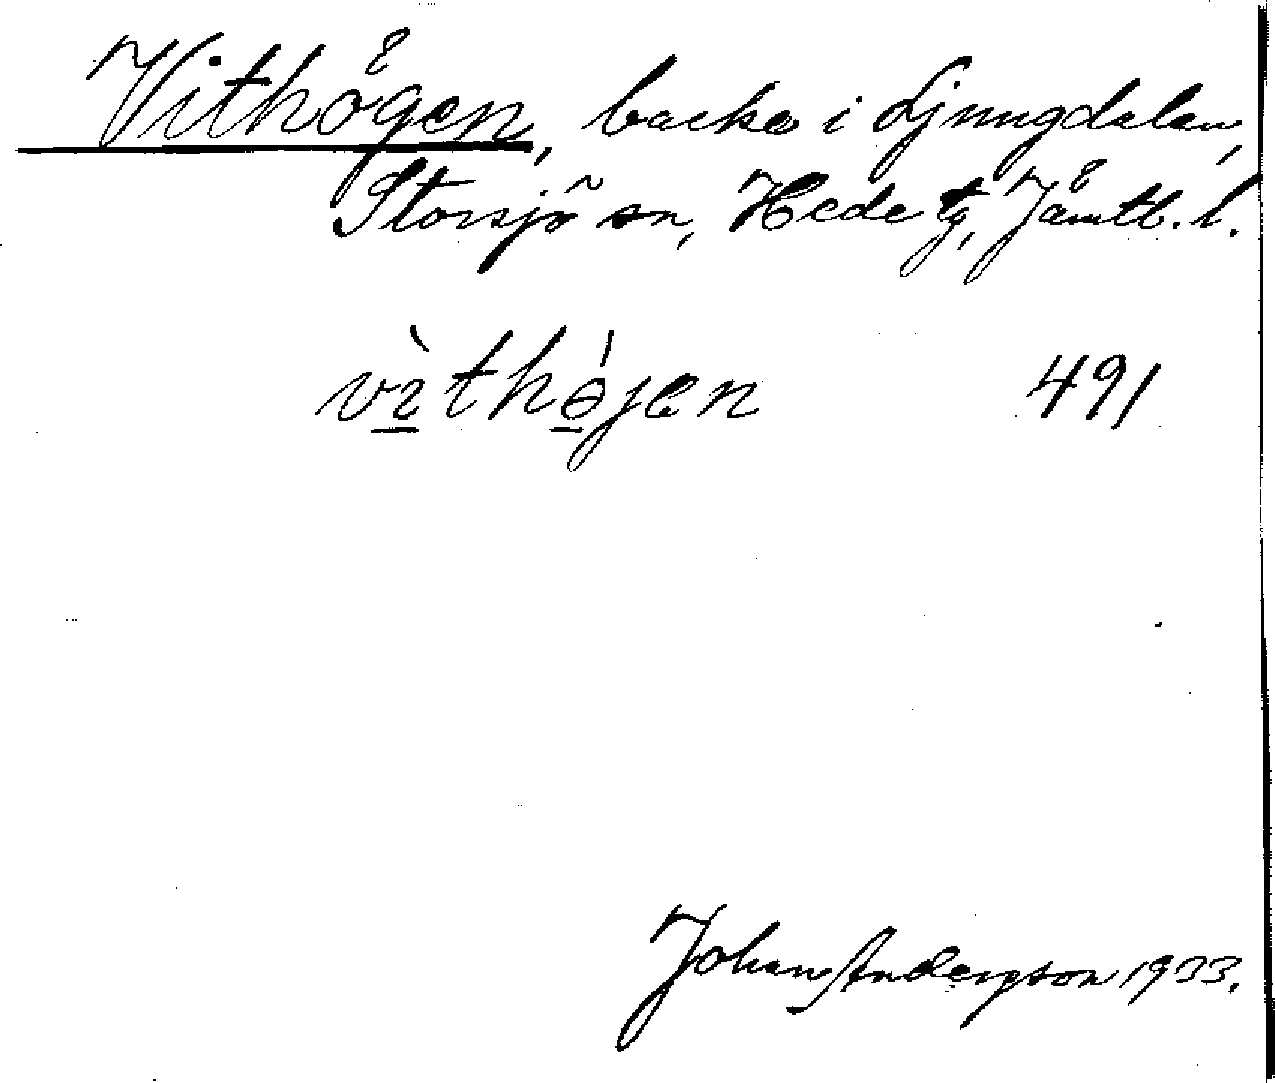 Vithögen, backe i Ljungdalen,
Storsjö sn, Hede tg, Jämtl. l.
vìthө́jen 491
Johan Anderzson 1933.